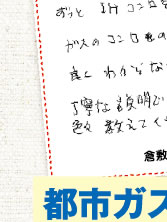 ずっと IHコンロを
ガスのコンロもの
良く わからな
丁寧な説明で
色々 教えてく
倉敷
都市ガス